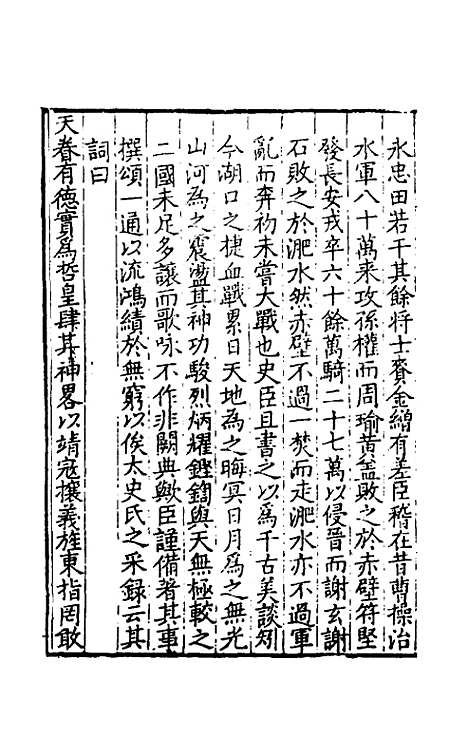 永忠田若干其餘將士賚金繒有差臣稽在昔曹操治
水軍八十萬來攻孫權而周瑜黃盖敗之於赤壁符堅
發長安戎卒六十餘萬騎二十七萬以侵晉而謝玄謝
石敗之於淝水然赤壁不過一焚而走淝水亦不過軍
亂而奔初未嘗大戰也史臣且書之以為千古美談矧
今湖口之捷血戰累日天地為之晦冥日月為之無光
山河為之震盪其神功駿烈炳耀鏗鍧與天無極較之
二國未足多讓而歌咏不作非闕典歟臣謹備著其事
撰頌一通以流鴻績於無窮以俟太史氏之采録云其
詞曰
天眷有德實為哲皇肆其神畧以靖冦攘義旌東指罔敢